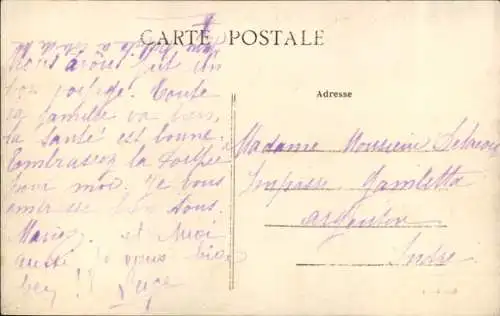 CARTE POSTALE
Adresse
Nous avons fait un
bon voyage. Toute
la famille va bien,
la santé est bonne.
Embrassez la
pour moi. Je vous
embrasse bien tous.
Marie. et moi
aussi je vous bien
Madame Monsieur
Impasse Gambetta
Argenton
Indre